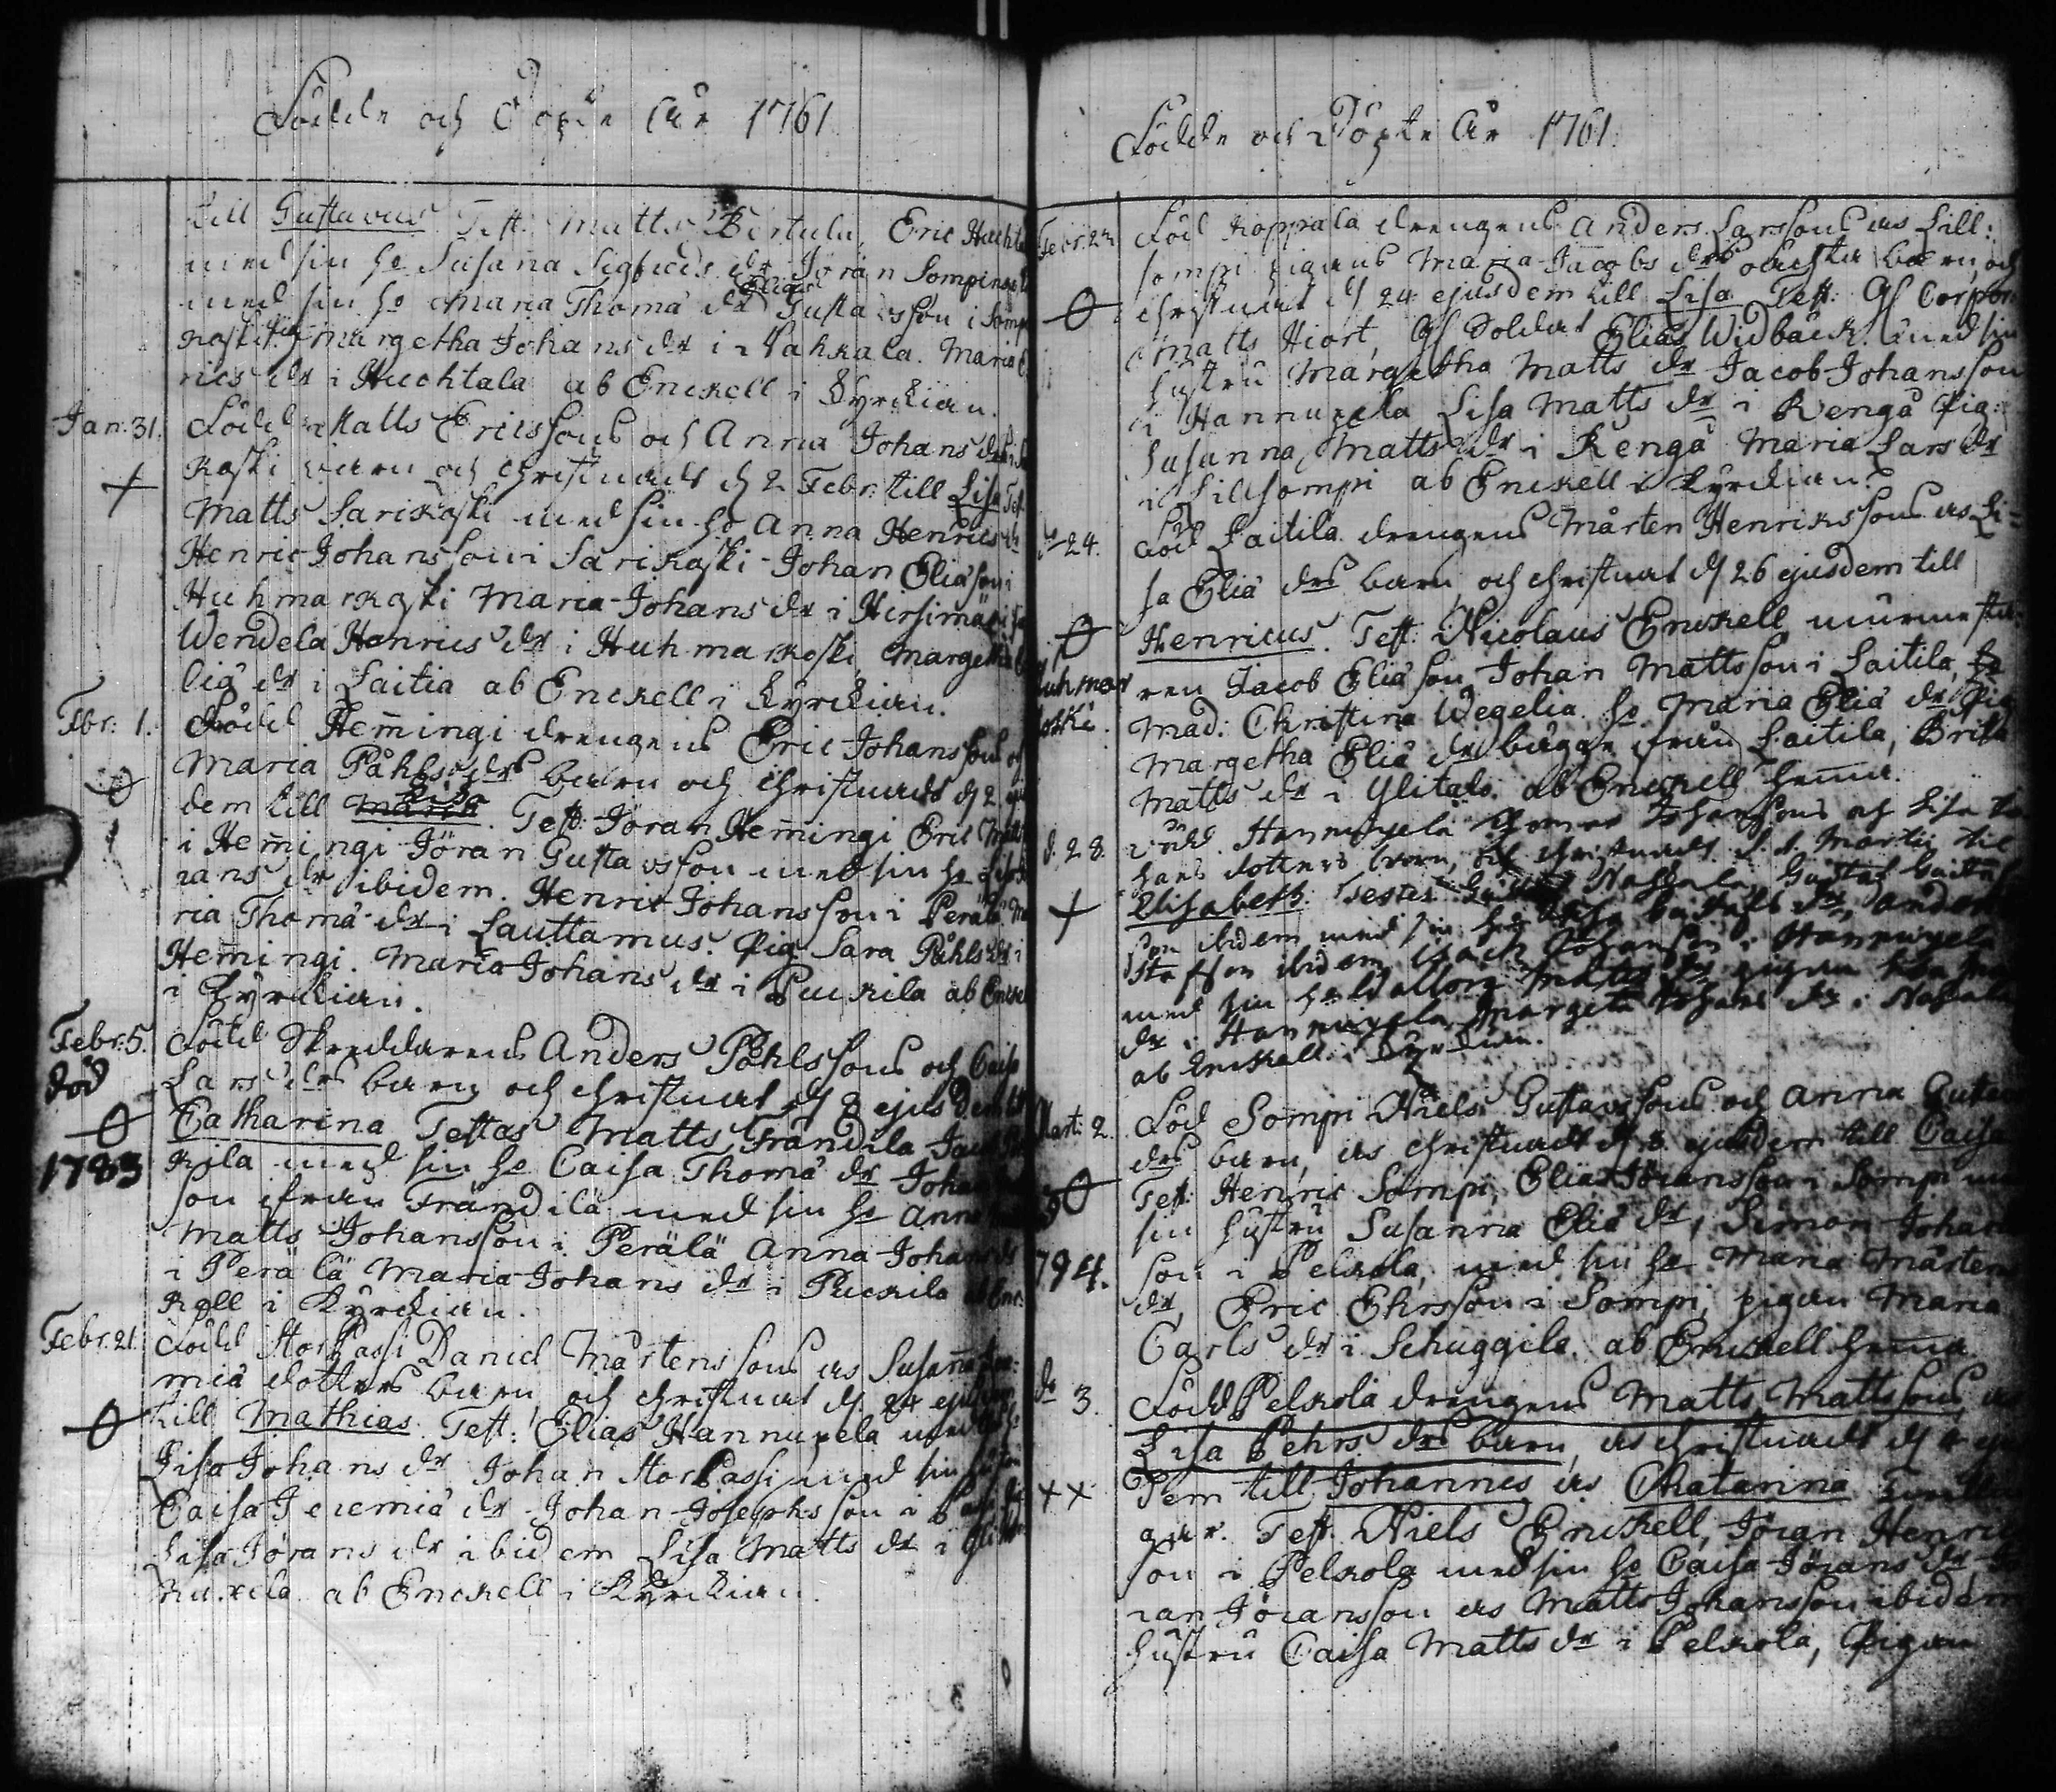 Födde och Döpte År 1761
till Gustavus Test: Matts Bertula, Eric Huchta
med sin h: Susana Sigfrids dr Jöran Sompinen
med sin h: Maria Thomæ dr Elias Gustafsson i Somp
koski Pig: Margetha Johans dr i Nahkala. Maria E
rics dr i Huchtala ab Enckell i Kyrckian.
Jan: 31. Född Matts Ericssons och Anna Johans drs i
koski barn och christnades d 2 Febr: till Lisa Test
Matts Sarikoski med sin h: Anna Henrics dr
Henric Johansson i Sarikoski Johan Eliæson i
Huhmarkoski Maria Johans dr i Hirsimäki
Wendela Henrics dr i Huhmarkoski Margetha
liæ dr i Laitia ab Enckell i Kyrckian.
Febr: 1. Född Hem̄ingi drengens Eric Johanssons och
Maria Påhls drs barn och christnades d 2 eju
dem till Maria Lisa. Test: Jöran Hem̄ingi Eric Matts
i Hem̄ingi Jöran Gustavsson med sin h: Lisa
rans dr ibidem. Henric Johansson i Perälä Ma
ria Thomæ dr i Lauttamus. Pig: Sara Påhls dr i
Hem̄ingi. Maria Johans dr i Puckila ab Enckell
i Kyrckian.
Febr: 5. Född Skreddarens Anders Påhlssons och Caisa
död Lars drs barn och christnat d 8 ejusdem till
Catharina Testas Matts Frändilä, Jac
1783 kila med sin h: Caisa Thomæ dr Johan
son ifrån Frändilä med sin h: Anna
Matts Johansson i Perälä Anna Johans dr
i Perälä Maria Johans dr i Puckila ab Enc
kell i Kyrckian.
Febr: 21. Född StorPassi Daniel Mårtenssons och Susanna Jere
miæ dotters barn, och christnat d 24 ejusdem
till Mathias. Test: Elias Hannuxela med sin h:
Lisa Johans dr Johan StorPassi med sin hustru
Caisa Jeremiæ dr Johan Josephsson i Passi
Lisa Jörans dr ibidem Lisa Matts dr i
nuxela ab Enckell i Kyrckian.
Födde och Döpte År 1761.
Febr: 22. Född Koppala drengens Anders Larssons och Lill:
sompi pigans Maria Jacobs drs oächta barn, och
christnat d 24 ejusdem till Lisa Test: Gl Corpor
Matts Hiort, Gl Soldat Elias Widbäck med sin
hustru Margetha Matts dr Jacob Johansson
i Hannuxela Lisa Matts dr i Rengå Pig:
Susanna Matts dr i Rengå Maria Lars dr
i Lillsompi ab Enckell i Kyrckian.
d 24. Född Laitila drengens Mårten Henrikssons och Li=
sa Eliæ drs barn, och christnat d 26 ejusdem till
Henricus. Test: Nicolaus Enckell murmesta
Huhmar ren Jacob Eliæson Johan Mattsson i Laitila,
koski. Mad: Christina Wegelia h: Maria Eliæ dr Pig
Margetha Eliæ dr bägge ifrån Laitila, Brita
Matts dr i Ylitalo. ab Enckell hem̄a.
d. 28. Född Hannuxela Thomas Johanssons och Lisa Jo
hans dotters barn, och christnades d. 1. Martii til
Elisabeth. Testes Nahkala, Gustaf Gustaf
son ibidem med sin hu Lisa Gustafs dr, Anders
Stafson ibidem Isach Johansson i Hannuxela
med sin h: Wallborg Matts dr pigan
dr i Hannuxela, Margeta Johans dr i Nahkala
ab Enckell i Kyrckian.
Mart: 2. Född Sompi Niels Gustavssons och Anna Gustavs
drs barn, och christnades d 3 ejusdem till Caisa
Test: Henric Sompi, Elias Jöransson i Sompi med
sin hustru Susanna Eliæ dr, Simon Johans
794. son i Pelkola, med sin h: Maria Mårtens
dr, Eric Ehrsson i Sompi, pigan Maria
Carls dr i Schuggila. ab Enckell hem̄a.
d 3. Född Pelkola drengens Matts Mattssons och
Lisa Pehrs drs barn och christnades d 4 ejus
dem till Johannes och Chatarina
gar. Test: Niels Enckell, Jöran Henrics
son i Pelkola med sin h: Caisa Jörans dr Jö
ran Jöransson och Matts Johansson ibidem
hustru Caisa Matts dr i Pelkola, Pigan